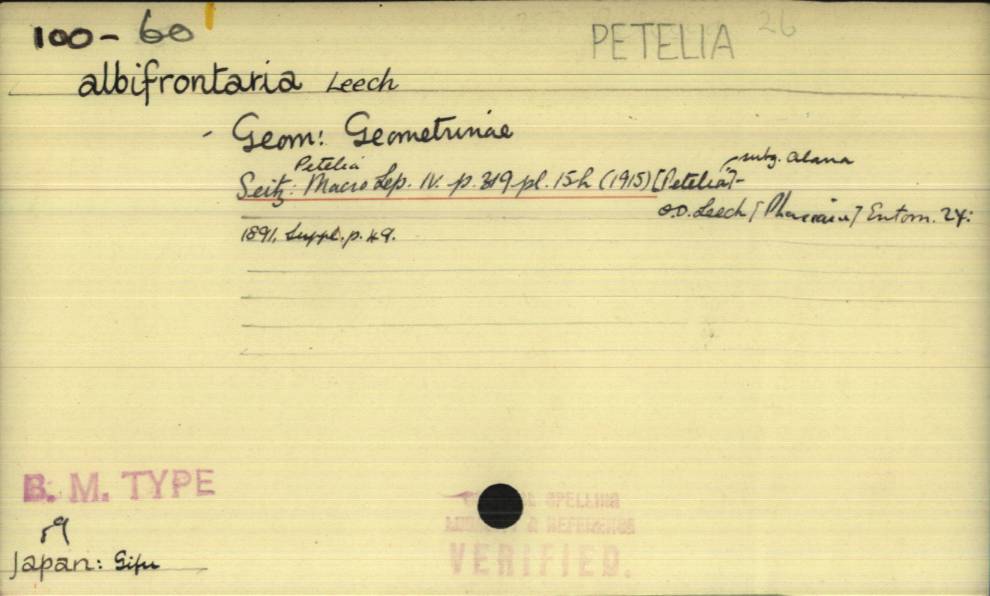 100-60
PETELIA 26
albifrontaria Leech
- Geom: Geometrinae
Petelia
subg. Alana
Seitz: Macro Lep. IV. p. 319 pl. 15h (1915) [Petelia]-
O.D. Leech [ ] Entom. 24:
1891. Suppl. p. 49.
B. M. TYPE
Japan: Gifu
SPELLING
& REFERENCE
VERIFIED.